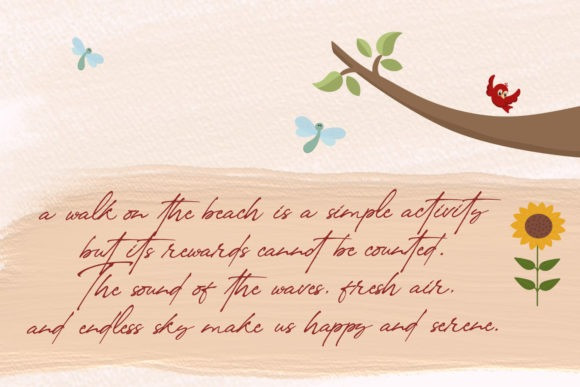 a walk on the beach is a simple activity
but its rewards cannot be counted.
The sound of the waves, fresh air,
and endless sky make us happy and serene.